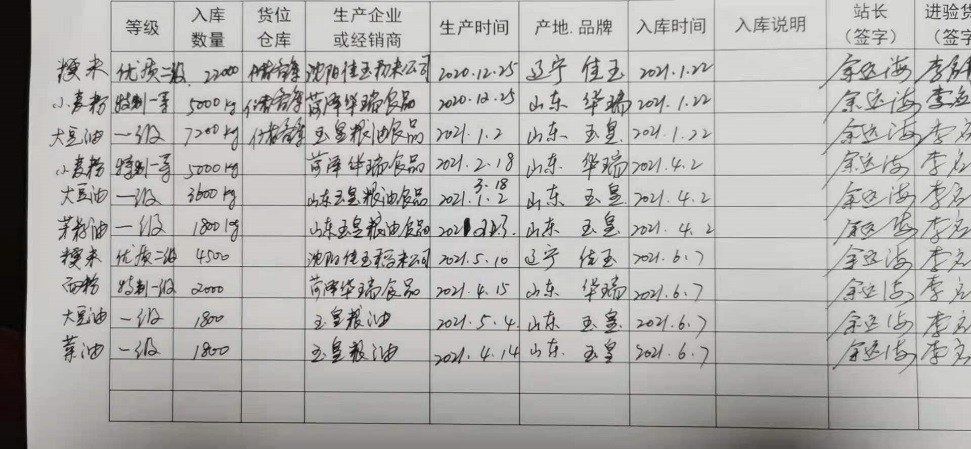 等级 入库数量 货位仓库 生产企业或经销商 生产时间 产地.品牌 入库时间 入库说明 站长(签字) 进验货(签字)
粳米 优质二级 22000 沈阳佳玉稻米公司 2020.12.25 辽宁 佳玉 2021.1.22 余远海
小麦粉 特制一等 5000kg 菏泽华瑞食品 2020.12.25 山东 华瑞 2021.1.22 余远海
大豆油 一级 7200kg 玉皇粮油食品 2021.1.2 山东 玉皇 2021.1.22 余远海
小麦粉 特制一等 5000kg 菏泽华瑞食品 2021.2.18 山东 华瑞 2021.4.2 余远海
大豆油 一级 3600kg 山东玉皇粮油食品 2021. 3.18 山东 玉皇 2021.4.2 余远海
一级 1800kg 山东玉皇粮油食品 山东 玉皇 2021.4.2 余远海
粳米 优质二级 4500 沈阳佳玉稻米公司 2021.5.10 辽宁 佳玉 2021.6.7 余远海
面粉 特制一级 2000 菏泽华瑞食品 2021.4.15 山东 华瑞 2021.6.7 余远海
大豆油 一级 1800 玉皇粮油 2021.5.4 山东 玉皇 2021.6.7 余远海
菜油 一级 1800 玉皇粮油 2021.4.14 山东 玉皇 2021.6.7 余远海